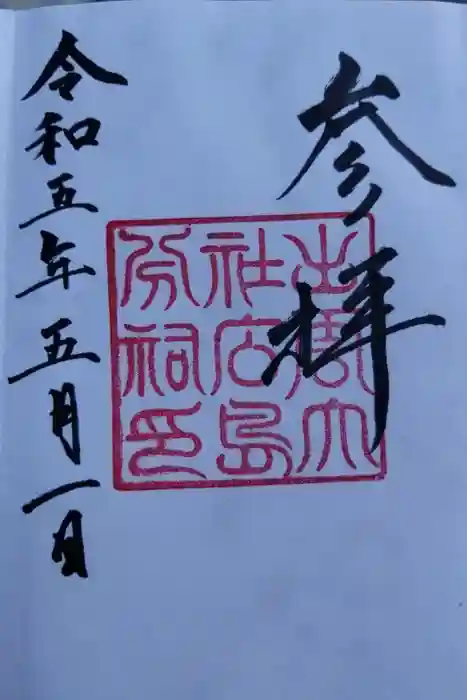 参拝
出雲大
社広島
分祠印
令和五年五月一日